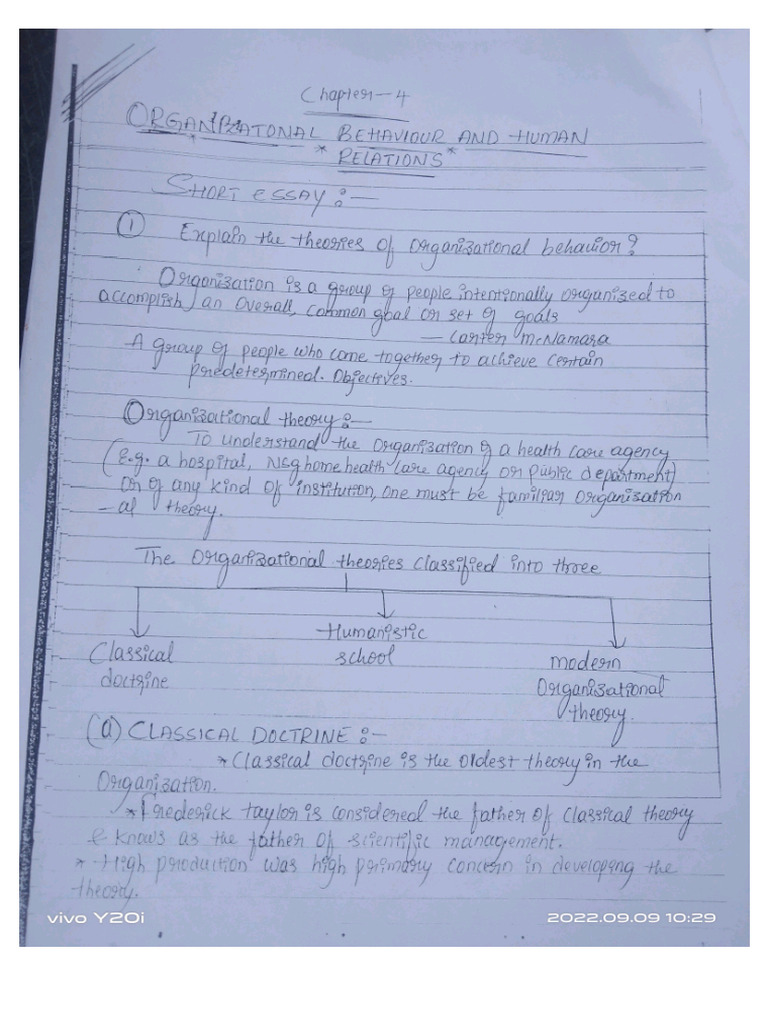 Chapter-4
ORGANIZATONAL BEHAVIOUR AND HUMAN
* RELATIONS *
SHORT ESSAY :-
① Explain the theories of Organizational behavior?
Organization is a group of people intentionally organized to
accomplish an overall, common goal or set of goals
- Carter McNamara
A group of people who come together to achieve certain
predetermined. Objectives.
Organizational theory :-
To understand the organization of a health care agency
(E.g. a hospital, Nsg home health care agency or public department)
Or of any kind of institution, one must be familiar organization
-al theory.
The organizational theories classified into three
Classical
doctrine
Humanistic
school
modern
Organizational
theory.
(a) CLASSICAL DOCTRINE :-
* Classical doctrine is the oldest theory in the
Organization.
* Frederick taylor is considered the father of classical theory
& knows as the father of scientific management.
* High production was high primary concern in developing the
theory.
vivo Y20i
2022.09.09 10:29